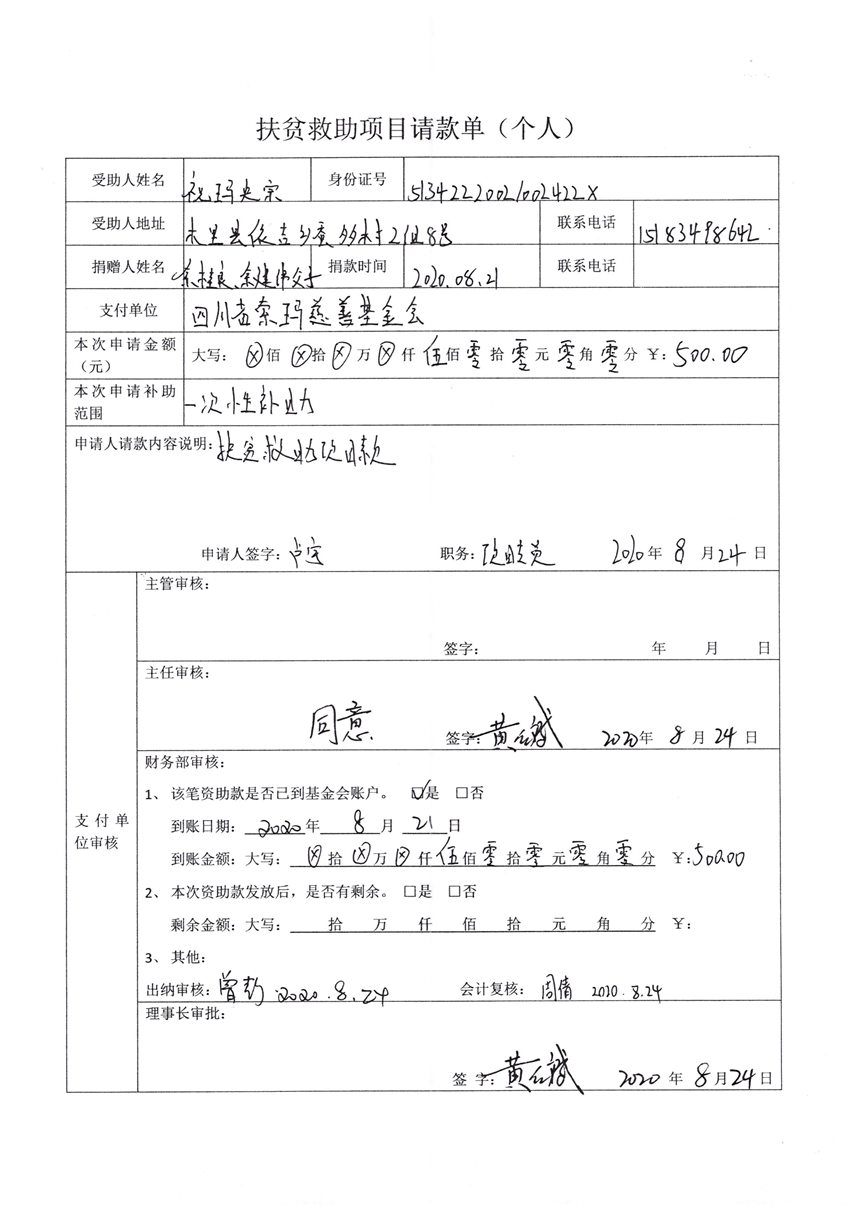 扶贫救助项目请款单（个人）
受助人姓名 祝玛央宗 身份证号 51342220021002422X
受助人地址 木里县依吉乡蚕多村2组8号 联系电话 15183498642
捐赠人姓名 余桂良、余建伟父子 捐款时间 2020.08.21 联系电话
支付单位 四川省索玛慈善基金会
本次申请金额（元） 大写：ⓧ佰ⓧ拾ⓧ万ⓧ仟伍佰零拾零元零角零分 ￥：500.00
本次申请补助范围 一次性补助
申请人请款内容说明：扶贫救助项目款
申请人签字： 职务：项目专员 2020年8月24日
支付单位审核
主管审核：
签字： 年 月 日
主任审核：
同意
签字：黄红斌 2020年8月24日
财务部审核：
1、该笔资助款是否已到基金会账户。 ☑是 □否
到账日期：2020年8月21日
到账金额：大写：ⓧ拾ⓧ万ⓧ仟伍佰零拾零元零角零分 ￥：500.00
2、本次资助款发放后，是否有剩余。 □是 □否
剩余金额：大写： 拾 万 仟 佰 拾 元 角 分 ￥：
3、其他：
出纳审核：曾 2020.8.24 会计复核：周倩 2020.8.24
理事长审批：
签 字：黄红斌 2020年8月24日